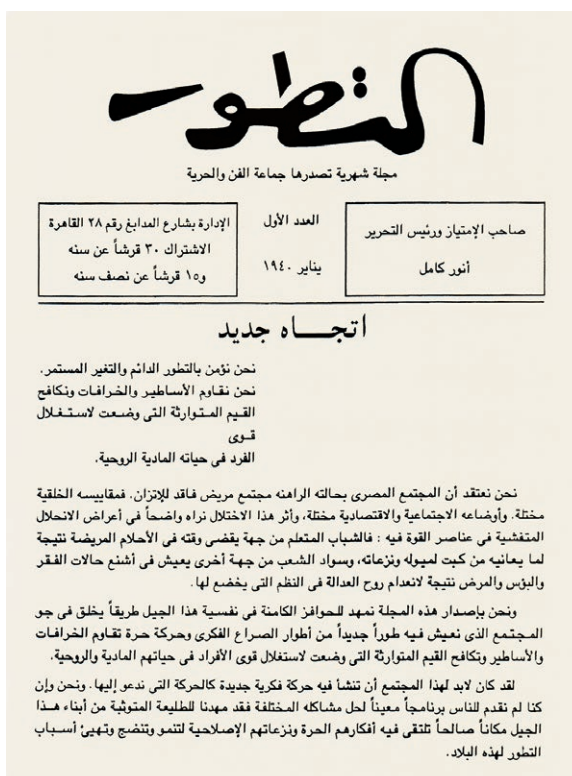 التطور
مجلة شهرية تصدرها جماعة الفن والحرية
صاحب الإمتياز ورئيس التحرير
أنور كامل
العدد الأول
يناير ١٩٤٠
الإدارة بشارع المدابغ رقم ٢٨ القاهرة
الاشتراك ٣٠ قرشاً عن سنه
و١٥ قرشاً عن نصف سنه
اتجـــاه جديد
نحن نؤمن بالتطور الدائم والتغير المستمر.
نحن نقاوم الأساطير والخرافات ونكافح
القيم المتوارثة التى وضعت لاستغلال
قوى
الفرد فى حياته المادية الروحية.
نحن نعتقد أن المجتمع المصرى بحالته الراهنه مجتمع مريض فاقد للإتزان. فمقاييسه الخلقية
مختلة. وأوضاعه الاجتماعية والاقتصادية مختلة، وأثر هذا الاختلال نراه واضحاً فى أعراض الانحلال
المتفشية فى عناصر القوة فيه : فالشباب المتعلم من جهة يقضى وقته فى الأحلام المريضة نتيجة
لما يعانيه من كبت لميوله ونزعاته، وسواد الشعب من جهة أخرى يعيش فى أشنع حالات الفقر
والبؤس والمرض نتيجة لانعدام روح العدالة فى النظم التى يخضع لها.
ونحن بإصدار هذه المجلة نمهد للحوافز الكامنة فى نفسية هذا الجيل طريقاً يخلق فى جو
المجتمع الذى نعيش فيه طوراً جديداً من أطوار الصراع الفكرى وحركة حرة تقاوم الخرافات
والأساطير وتكافح القيم المتوارثة التى وضعت لاستغلال قوى الأفراد فى حياتهم المادية والروحية.
لقد كان لابد لهذا المجتمع أن تنشأ فيه حركة فكرية جديدة كالحركة التى ندعو إليها. ونحن وإن
كنا لم نقدم للناس برنامجاً معيناً لحل مشاكله المختلفة فقد مهدنا للطليعة المتوثبة من أبناء هـذا
الجيل مكاناً صالحاً تلتقى فيه أفكارهم الحرة ونزعاتهم الإصلاحية لتنمو وتنضج وتهيئ أسباب
التطور لهذه البلاد.